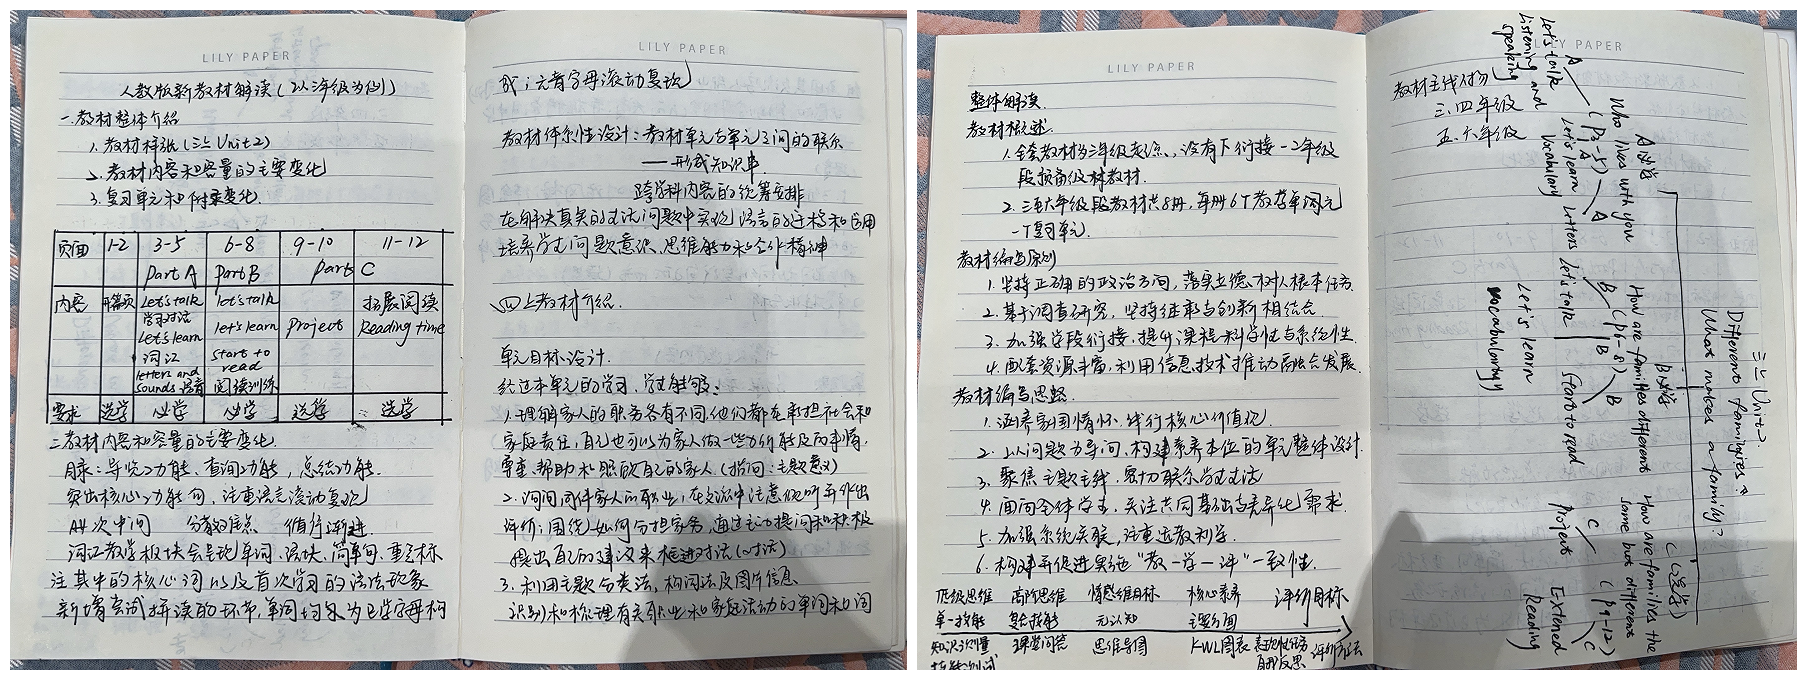 LILY PAPER
人教版新教材解读(以三年级为例)
一.教材整体介绍
1. 教材样张(三上 Unit2)
2. 教材内容和容量的主要变化
3. 复习单元和附录变化.
页面 1-2 3-5 6-8 9-10 11-12
Part A Part B Part C
内容 开篇页 Let's talk let's talk 扩展阅读
学习对话
Let's learn let's learn Project Reading time
词汇 start to
letters and read
sounds 语音 阅读训练
要求 选学 必学 必学 选学 选学
二.教材内容和容量的主要变化
目录:导览功能、查询功能,总结功能.
突出核心功能句,注重语言滚动复现
层次中间 分散难点 循序渐进.
词汇教学板块会呈现单词、语块、简单句,重点标
注其中的核心词以及首次学习的语法现象
新增尝试拼读的环节,单词均为已学字母构
LILY PAPER
成;元音字母滚动复现
教材体系性设计:教材单元与单元之间的联系
——形成知识串
跨学科内容的统筹安排
在解决真实的生活问题中实现语言的迁移和运用
培养学生问题意识、思维能力和合作精神
四上教材介绍.
单元目标设计.
经过本单元的学习,学生能够:
1.理解家人的职务各有不同,他们都在承担社会和
家庭责任,自己也可以为家人做一些力所能及的事情.
尊重、帮助和照顾自己的家人(指向:主题意义)
2. 询问同伴家人的职业,在交流中注意倾听并作出
评价;围绕如何分担家务,通过主动提问和积极
提出自己的建议来推进对话(对话)
3. 利用主题分类法,构词法及图片信息、
识别和梳理有关职业和家庭活动的单词和词
LILY PAPER
整体解读.
教材概述.
1.全套教材为三年级起点,没有下衔接一2年级
段预备级教材.
2. 三至六年级段教材共8册,每册6个教学单元
一个复习单元.
教材编写原则
1. 坚持正确的政治方向,落实立德树人根本任务
2. 基于调查研究,坚持继承与创新相结合
3. 加强学段衔接,提升课程科学性与系统性.
4. 配套资源丰富,利用信息技术推动融合发展.
教材编写思路.
1. 涵养家国情怀,践行核心价值观
2. 以问题为导向,构建素养本位的单元整体设计.
3. 聚焦主题主线,密切联系学生生活
4. 面向全体学生,关注共同基础与差异化需求.
5. 加强系统关联,注重选教利学.
6. 构建并促进实施“教—学—评”一致性.
低级思维 高阶思维 情感维目标 核心素养 评价目标
单一技能 复杂技能 元认知 主要方面
知识测量 课堂问答 思维导图 KWL图表 表现性任务 评价方法
技能测试 自那反思
LILY PAPER
教材主线人物
三.四年级
五.六年级
三上 Unit2
Different families?
What makes a family?
A必学
B必学
C(选学)
Who lives with you
How are families different
How are families the same but different
A (P3-5) A
B (P6-8) B
C (P9-12) C
Let's talk
Listening and speaking
Let's learn
Vocabulary
Letters
Let's talk
Let's learn
Vocabulary
Start to read
Project
Extened Reading